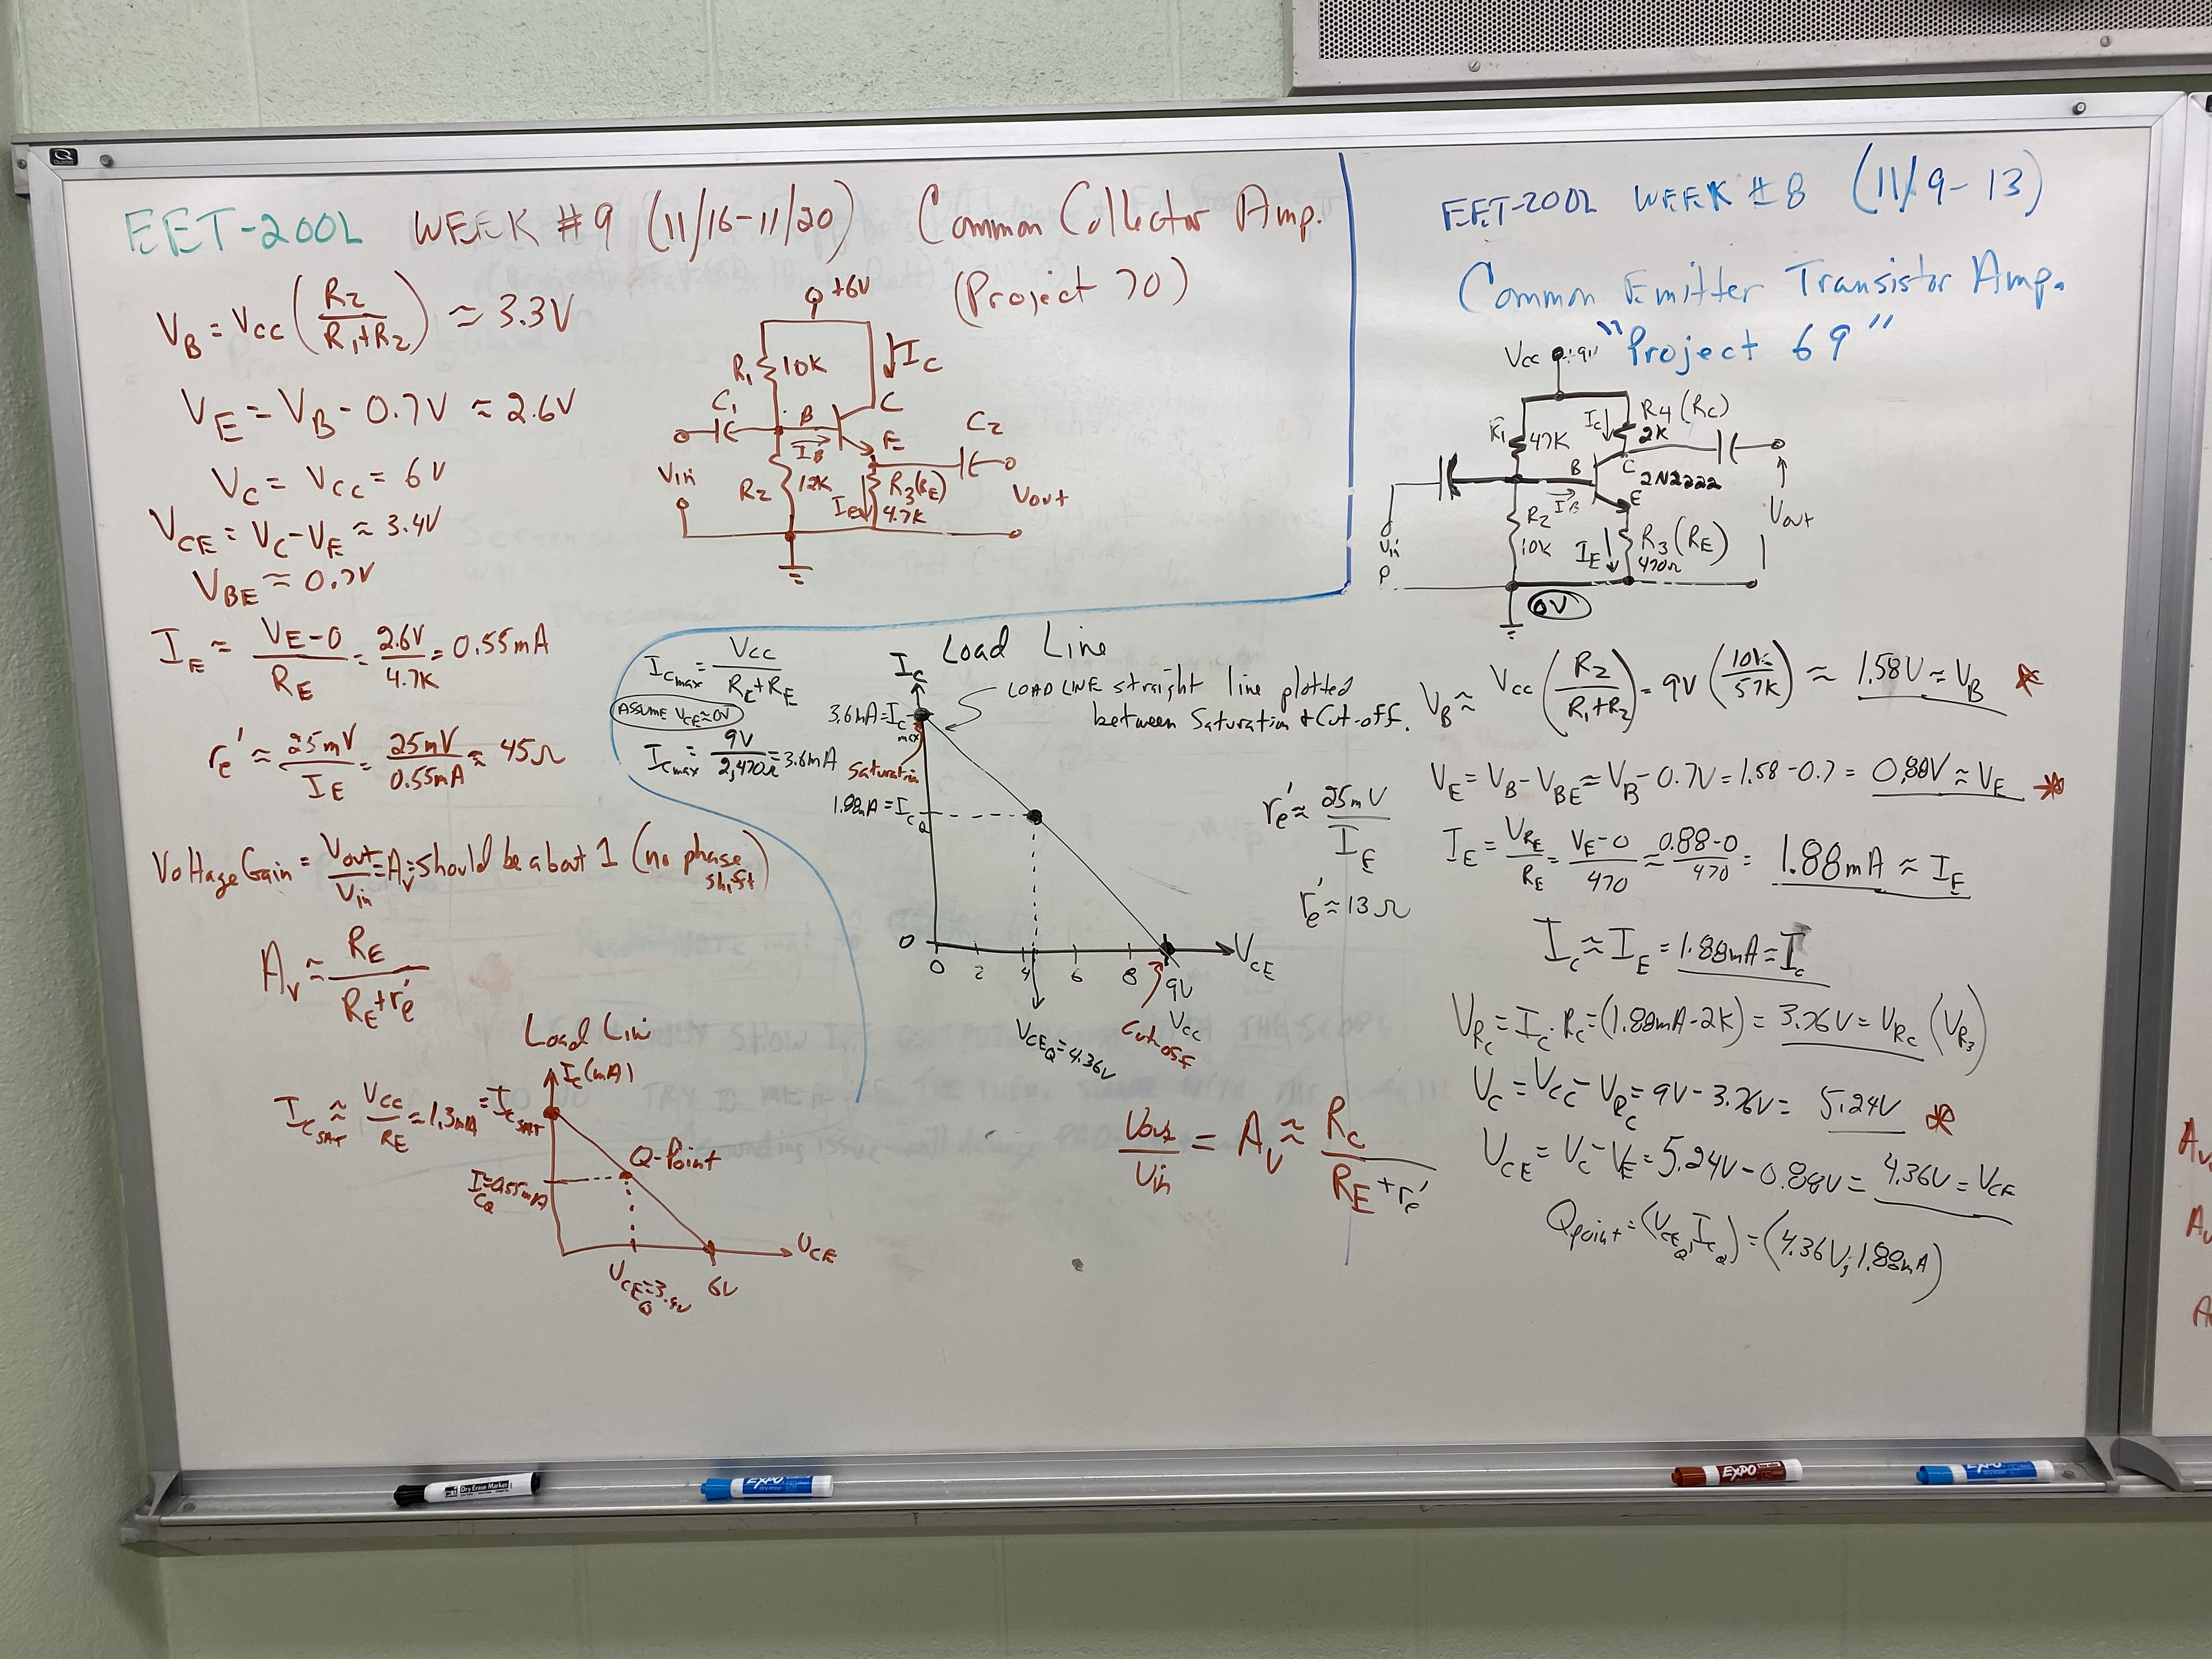 EET-200L WEEK #9 (11/16-11/20) Common Collector Amp.
(Project 70)
V_B = V_CC (R2 / (R1+R2)) ≈ 3.3V
V_E = V_B - 0.7V ≈ 2.6V
V_C = V_CC = 6V
V_CE = V_C - V_E ≈ 3.4V
V_BE ≈ 0.7V
I_E ≈ (V_E - 0) / R_E = 2.6V / 4.7K = 0.55mA
r'e ≈ 25mV / I_E = 25mV / 0.55mA ≈ 45Ω
Voltage Gain = Vout / Vin = A_V = should be about 1 (no phase
shift)
A_V ≈ R_E / (R_E + r'e)
+6V
R1 10K
I_C
C1
B
C
E
C2
I_B
Vin
R2 12K
I_E
R3 (R_E)
4.7K
Vout
Load Lin
I_C (mA)
I_C SAT ≈ V_CC / R_E ≈ 1.3mA = I_C SAT
Q-Point
I_CQ = 0.55mA
V_CE
V_CEQ = 3.4V
6V
I_Cmax = V_CC / (R_C + R_E)
ASSUME V_CE ≈ 0V
I_Cmax = 9V / 2,470Ω = 3.6mA
Load Line
I_C
LOAD LINE straight line plotted
between Saturation & Cut-off.
3.6mA = I_C max
Saturation
1.88mA = I_CQ
0
0 2 4 6 8 9V
V_CE
V_CC
Cut-off
V_CEQ = 4.36V
r'e ≈ 25mV / I_E
r'e ≈ 13Ω
Vout / Vin = A_V ≈ R_C / (R_E + r'e)
EET-200L WEEK #8 (11/9-13)
Common Emitter Transistor Amp.
"Project 69"
Vcc +9V
R1 47K
I_C
R4 (RC)
2K
B
C
2N2222
E
I_B
R2
10K
I_E
R3 (RE)
470Ω
Vin
Vout
0V
V_B ≈ V_CC (R2 / (R1+R2)) = 9V (10K / 57K) ≈ 1.58V ≈ V_B *
V_E = V_B - V_BE ≈ V_B - 0.7V = 1.58 - 0.7 = 0.88V ≈ V_E *
I_E = V_RE / R_E = (V_E - 0) / 470 ≈ (0.88 - 0) / 470 = 1.88mA ≈ I_E
I_C ≈ I_E = 1.88mA = I_C
V_RC = I_C · R_C = (1.88mA · 2K) = 3.76V = V_RC (V_R3)
V_C = V_CC - V_RC = 9V - 3.76V = 5.24V *
V_CE = V_C - V_E = 5.24V - 0.88V = 4.36V = V_CE
Q point = (V_CEQ, I_CQ) = (4.36V, 1.88mA)
EXPO
EXPO
EXPO
Dry Erase Marker